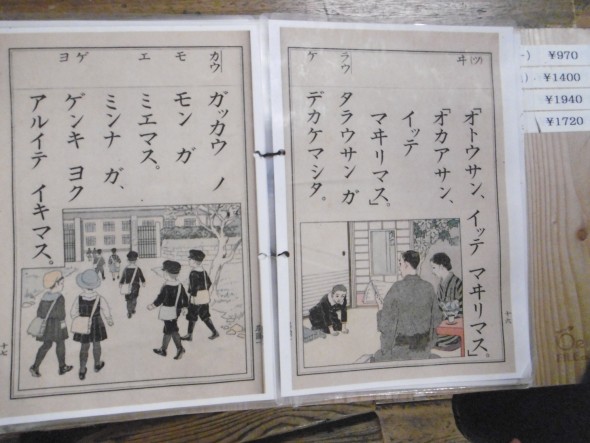 (ツ) ヰ ラウ ケ
「オトウサン、イッテ マヰリマス」。
「オカアサン、
イッテ
マヰリマス」。
タラウサン ガ
デカケマシタ。
十六
カウ モ エ ゲ ヨ
ガッカウ ノ
モン ガ
ミエマス。
ミンナ ガ、
ゲンキ ヨク
アルイテ イキマス。
十七
¥970
¥1400
¥1940
¥1720